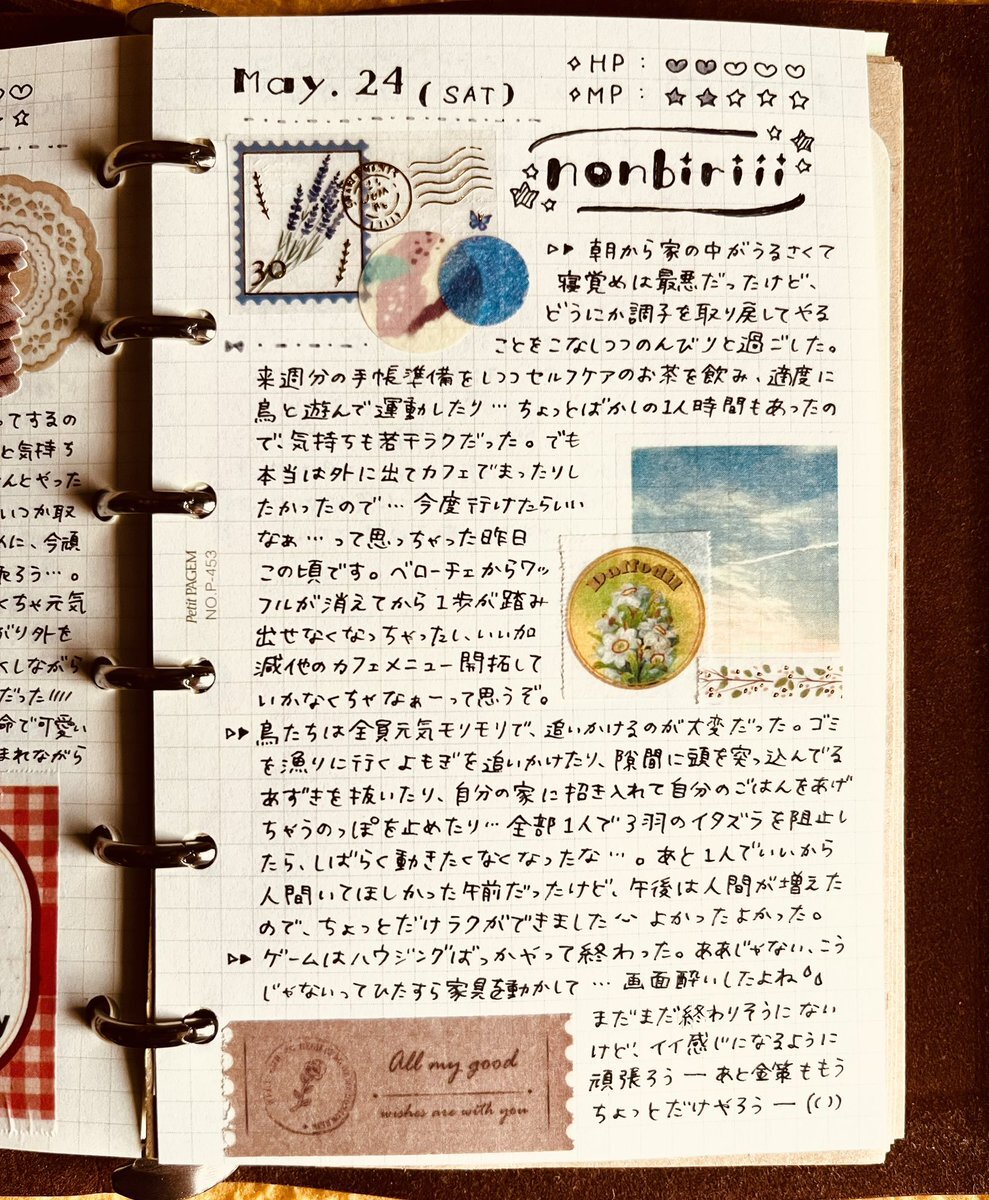 May. 24 (SAT)
◇HP : ♥♥♡♡♡
◇MP : ★★☆☆☆
nonbiriii
30
▷▶ 朝から家の中がうるさくて
寝覚めは最悪だったけど、
どうにか調子を取り戻してやる
ことをこなしつつのんびりと過ごした。
来週分の手帳準備をしつつセルフケアのお茶を飲み、適度に
鳥と遊んで運動したり…ちょっとばかしの1人時間もあったの
で、気持ちも若干ラクだった。でも
本当は外に出てカフェでまったりし
たかったので…今度行けたらいい
なぁ…って思っちゃった昨日
この頃です。ベローチェからワッ
フルが消えてから1歩が踏み
出せなくなっちゃったし、いい加
減他のカフェメニュー開拓して
いかなくちゃなぁーって思うぞ。
Daffodil
▷▶ 鳥たちは全員元気モリモリで、追いかけるのが大変だった。ゴミ
を漁りに行くよもぎを追いかけたり、隙間に頭を突っ込んでる
あずきを抜いたり、自分の家に招き入れて自分のごはんをあげ
ちゃうのっぽを止めたり…全部1人で3羽のイタズラを阻止し
たら、しばらく動きたくなくなったな…。あと1人でいいから
人間いてほしかった午前だったけど、午後は人間が増えた
ので、ちょっとだけラクができました よかったよかった。
▷▶ ゲームはハウジングばっかやって終わった。ああじゃない、こう
じゃないってひたすら家具を動かして…画面酔いしたよね
まだまだ終わりそうにない
けど、イイ感じになるように
頑張ろうーあと金策ももう
ちょっとだけやろうー
All my good
wishes are with you
Petit PAGEM
NO.P-453
ってするの
と気持ち
んとやった
いつか取
めに、今頑
張ろう…。
くちゃ元気
がり外を
くしながら
だった
命で可愛い
まれながら
y